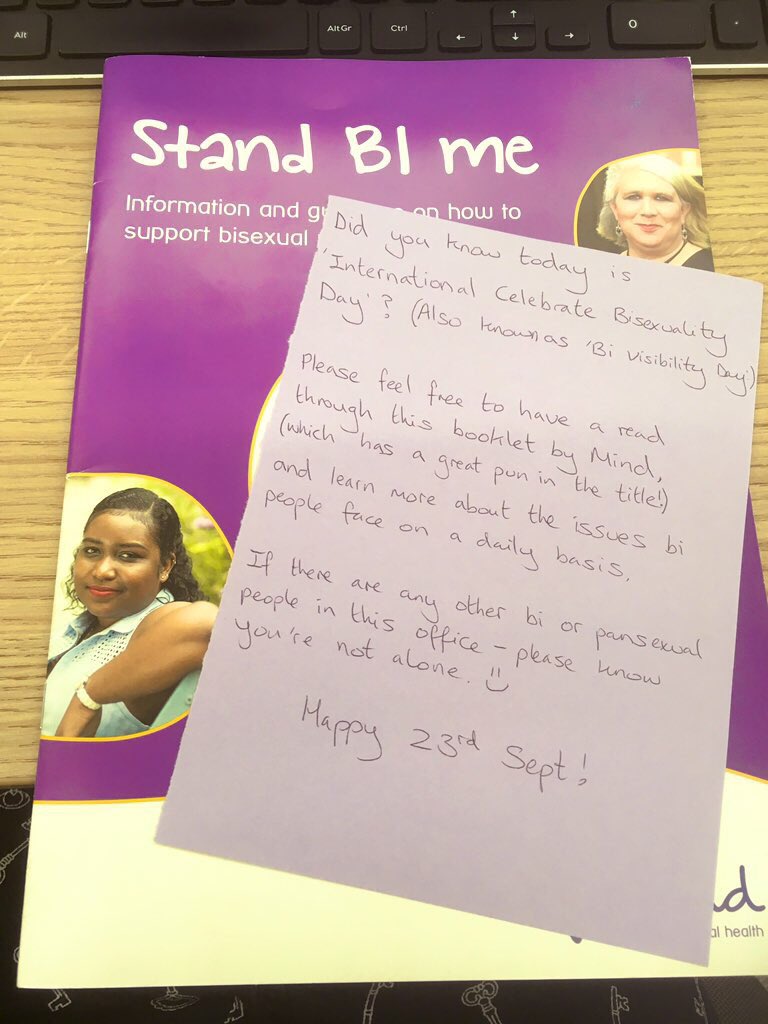 Alt
Alt Gr
Ctrl
↑
←
↓
→
0
.
Stand BI me
Information and on how to
support bisexual
Did you know today is
'International Celebrate Bisexuality
Day'? (Also known as 'Bi Visibility Day')
Please feel free to have a read
through this booklet by Mind,
(which has a great pun in the title!)
and learn more about the issues bi
people face on a daily basis.
If there are any other bi or pansexual
people in this office - please know
you're not alone. :)
Happy 23rd Sept!
health